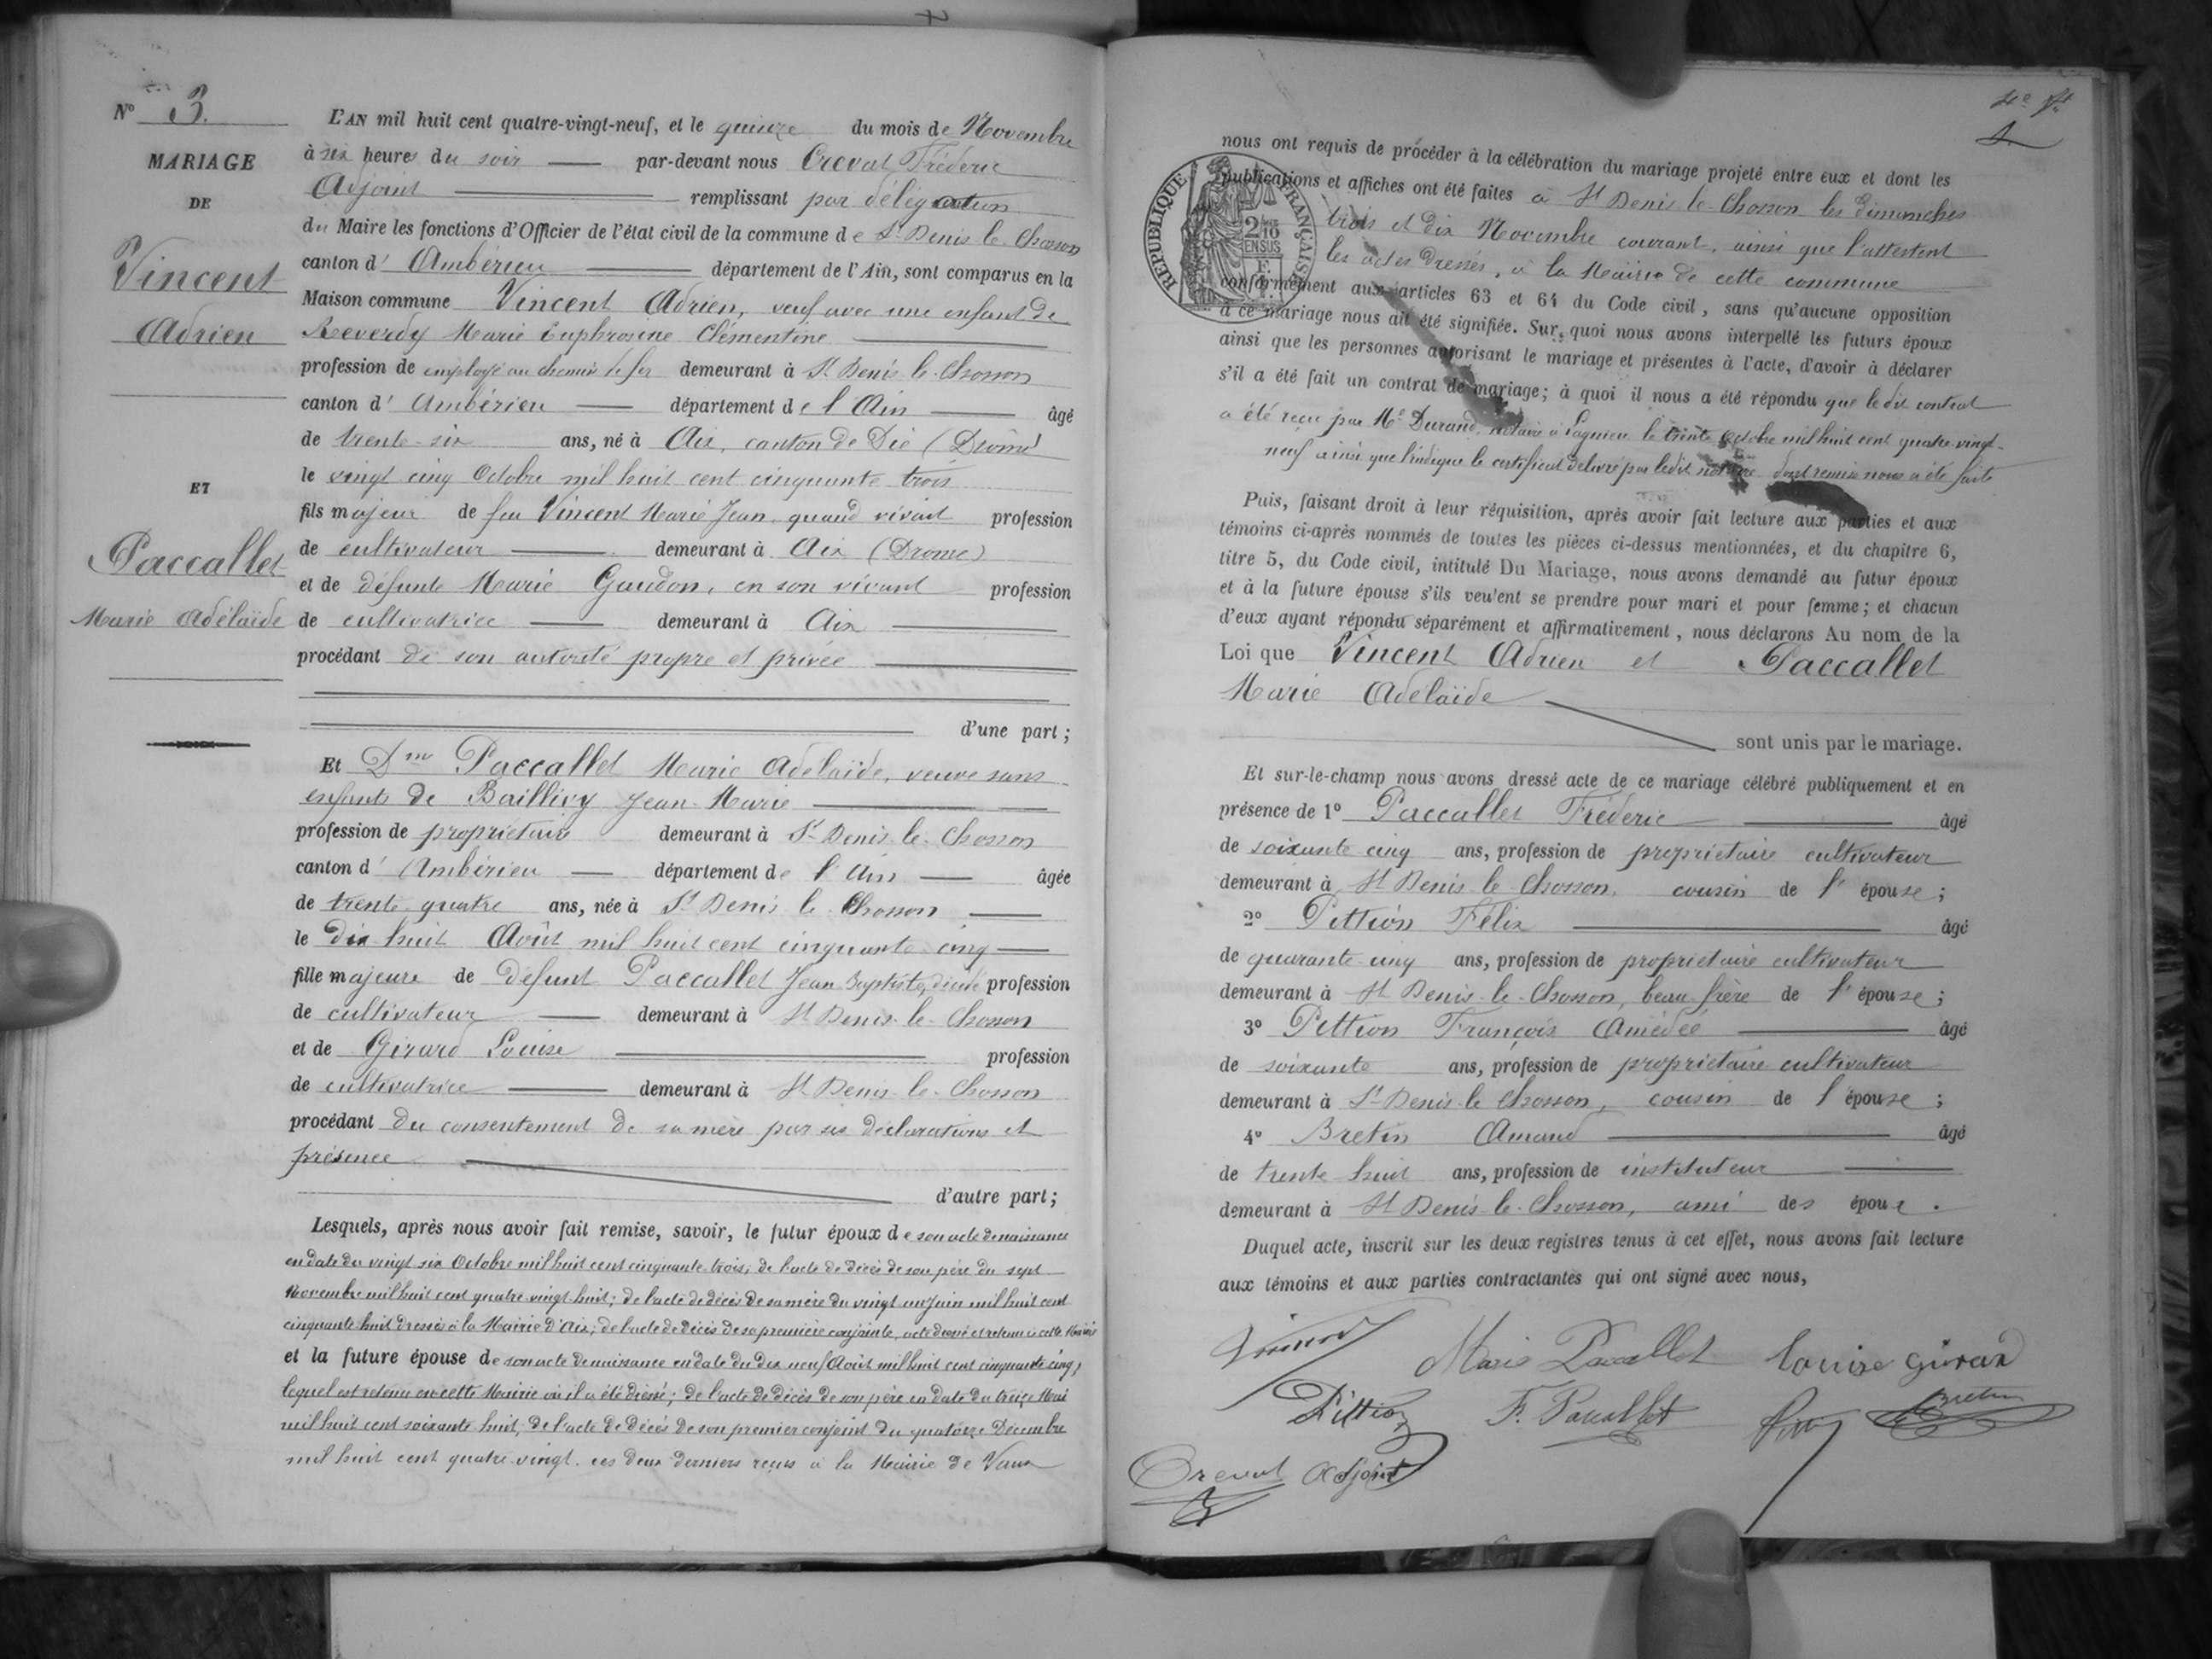 N° 3.
MARIAGE
DE
Vincent
Adrien
ET
Paccallet
Marie Adélaïde
L'AN mil huit cent quatre-vingt-neuf, et le quinze du mois de Novembre
à six heures du soir — par-devant nous Creval Fréderic
Adjoint — remplissant par délégation
du Maire les fonctions d'Officier de l'état civil de la commune de St Denis le Chosson
canton d' Ambérieu — département de l'Ain, sont comparus en la
Maison commune Vincent Adrien, veuf avec une enfant de
Reverdy Marie Euphrosine Clémentine —
profession de employé au chemin de fer demeurant à St Denis le Chosson
canton d' Ambérieu — département de l'Ain — âgé
de trente-six ans, né à Aix, canton de Die (Drôme)
le vingt cinq Octobre mil huit cent cinquante trois
fils majeur de feu Vincent Marie Jean, quand vivait profession
de cultivateur — demeurant à Aix (Drome)
et de défunte Marie Gaudon, en son vivant profession
de cultivatrice — demeurant à Aix —
procédant de son autorité propre et privée —
d'une part ;
Et Dme Paccallet Marie Adelaïde, veuve sans
enfants de Baillivy Jean-Marie —
profession de propriétaire demeurant à St Denis-le-Chosson
canton d' Ambérieu — département de l'Ain — âgée
de trente quatre ans, née à St Denis le Chosson —
le dix huit Août mil huit cent cinquante cinq —
fille majeure de défunt Paccallet Jean Baptiste, profession
de cultivateur — demeurant à St Denis-le-Chosson
et de Girard Louise — profession
de cultivatrice — demeurant à St Denis-le-Chosson
procédant du consentement de sa mère par ses déclarations et
présence —
d'autre part ;
Lesquels, après nous avoir fait remise, savoir, le futur époux de son acte de naissance
en date du vingt six Octobre mil huit cent cinquante trois; de l'acte de décès de son père du sept
Novembre mil huit cent quatre vingt huit; de l'acte de décès de sa mère du vingt un Juin mil huit cent
cinquante huit dressés à la Mairie d'Aix; de l'acte de décès de sa première conjointe, acte dressé et retenu à cette Mairie
et la future épouse de son acte de naissance en date du dix neuf Août mil huit cent cinquante cinq,
lequel est retenu en cette Mairie où il a été dressé; de l'acte de décès de son père en date du treize Mai
mil huit cent soixante huit; de l'acte de décès de son premier conjoint du quatorze Décembre
mil huit cent quatre-vingt. ces deux derniers reçus à la Mairie de Vaux
4
nous ont requis de procéder à la célébration du mariage projeté entre eux et dont les
publications et affiches ont été faites à St Denis-le-Chosson les dimanches
trois et dix Novembre courant, ainsi que l'attestent
les actes dressés, à la Mairie de cette commune
conformément aux articles 63 et 64 du Code civil, sans qu'aucune opposition
à ce mariage nous ait été signifiée. Sur quoi nous avons interpellé les futurs époux
ainsi que les personnes autorisant le mariage et présentes à l'acte, d'avoir à déclarer
s'il a été fait un contrat de mariage ; à quoi il nous a été répondu que le dit contrat
a été reçu par Me Durand, notaire à Lagnieu le trente Octobre mil huit cent quatre-vingt-
neuf ainsi que l'indique le certificat délivré par ledit notaire dont remise nous a été faite
RÉPUBLIQUE FRANÇAISE
Puis, faisant droit à leur réquisition, après avoir fait lecture aux parties et aux
témoins ci-après nommés de toutes les pièces ci-dessus mentionnées, et du chapitre 6,
titre 5, du Code civil, intitulé Du Mariage, nous avons demandé au futur époux
et à la future épouse s'ils veulent se prendre pour mari et pour femme ; et chacun
d'eux ayant répondu séparément et affirmativement, nous déclarons Au nom de la
Loi que Vincent Adrien et Paccallet
Marie Adelaïde
sont unis par le mariage.
Et sur-le-champ nous avons dressé acte de ce mariage célébré publiquement et en
présence de 1° Paccallet Fréderic — âgé
de soixante cinq ans, profession de propriétaire cultivateur
demeurant à St Denis-le-Chosson, cousin de l'épouse ;
2° Pittion Félix — âgé
de quarante-cinq ans, profession de propriétaire cultivateur
demeurant à St Denis-le-Chosson, beau frère de l'épouse ;
3° Pittion François Amédée — âgé
de soixante ans, profession de propriétaire cultivateur
demeurant à St Denis-le-Chosson, cousin de l'épouse ;
4° Bretin Amand — âgé
de trente huit ans, profession de instituteur —
demeurant à St Denis-le-Chosson, ami des époux.
Duquel acte, inscrit sur les deux registres tenus à cet effet, nous avons fait lecture
aux témoins et aux parties contractantes qui ont signé avec nous,
Vincent Marie Paccallet Louise Girard
Pittion F. Paccallet Bretin
Creval Adjoint